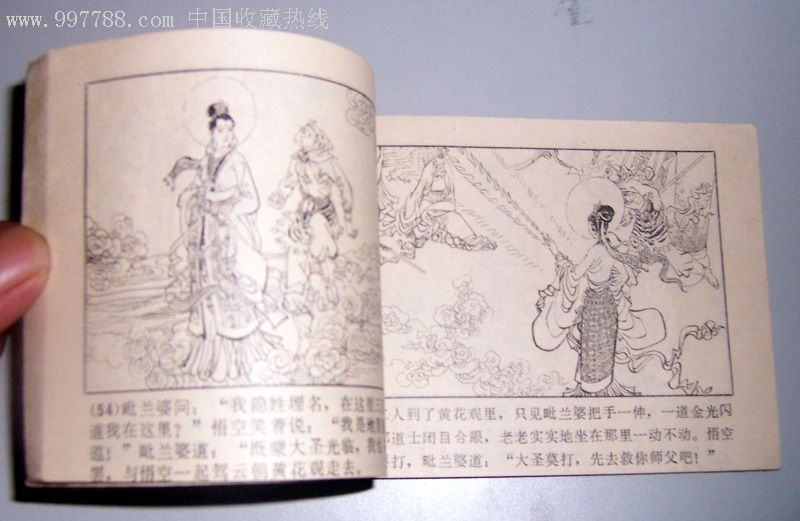 www.997788.com 中国收藏热线
(54)毗兰婆问：“我隐姓埋名，在这里
道我在这里？”悟空笑着说：“我是地
道！”毗兰婆道：“既蒙大圣光临，我
罢，与悟空一起驾云朝黄花观走去。
人到了黄花观里，只见毗兰婆把手一伸，一道金光闪
道士闭目合眼，老老实实地坐在那里一动不动。悟空
打，毗兰婆道：“大圣莫打，先去救你师父吧！”